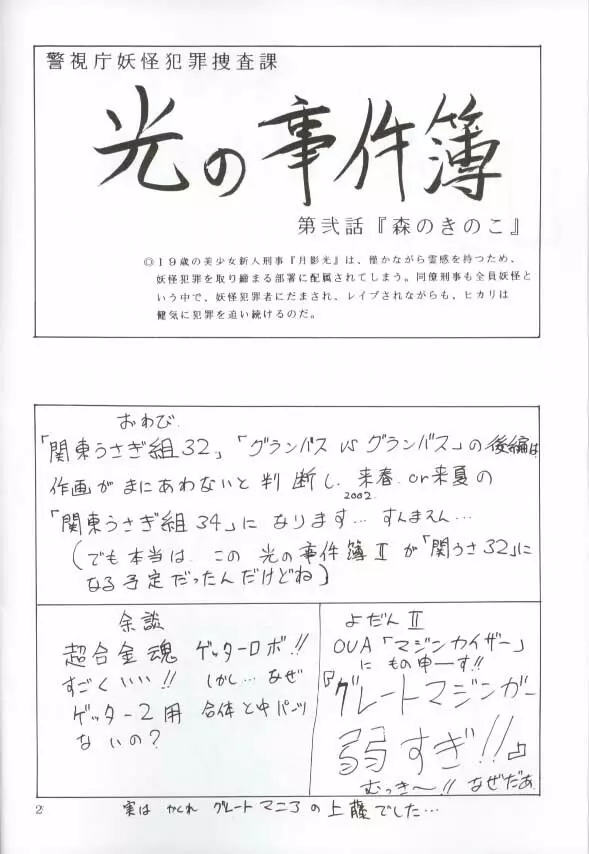 警視庁妖怪犯罪捜査課
光の事件簿
第弐話『森のきのこ』
◎19歳の美少女新人刑事『月影光』は、僅かながら霊感を持つため、
妖怪犯罪を取り締まる部署に配属されてしまう。同僚刑事も全員妖怪と
いう中で、妖怪犯罪者にだまされ、レイプされながらも、ヒカリは
健気に犯罪を追い続けるのだ。
おわび
「関東うさぎ組32」「グランバス VS グランバス」の後編は
作画がまにあわないと判断し、来春.or来夏の
2002.
「関東うさぎ組34」になります…すんまえん…
(でも本当は、この光の事件簿Ⅱが「関うさ32」に
なる予定だったんだけどね)
余談
超合金魂 ゲッターロボ!!
すごくいい!! しかし…なぜ
ゲッター2用 合体と中パンツ
ないの?
よだんⅡ
OVA「マジンカイザー」
にもの申ーす!!
『グレートマジンガー
弱すぎ!!』
むっき〜!! なぜだあ
2
実は かくれ グレートマニアの上藤でした…